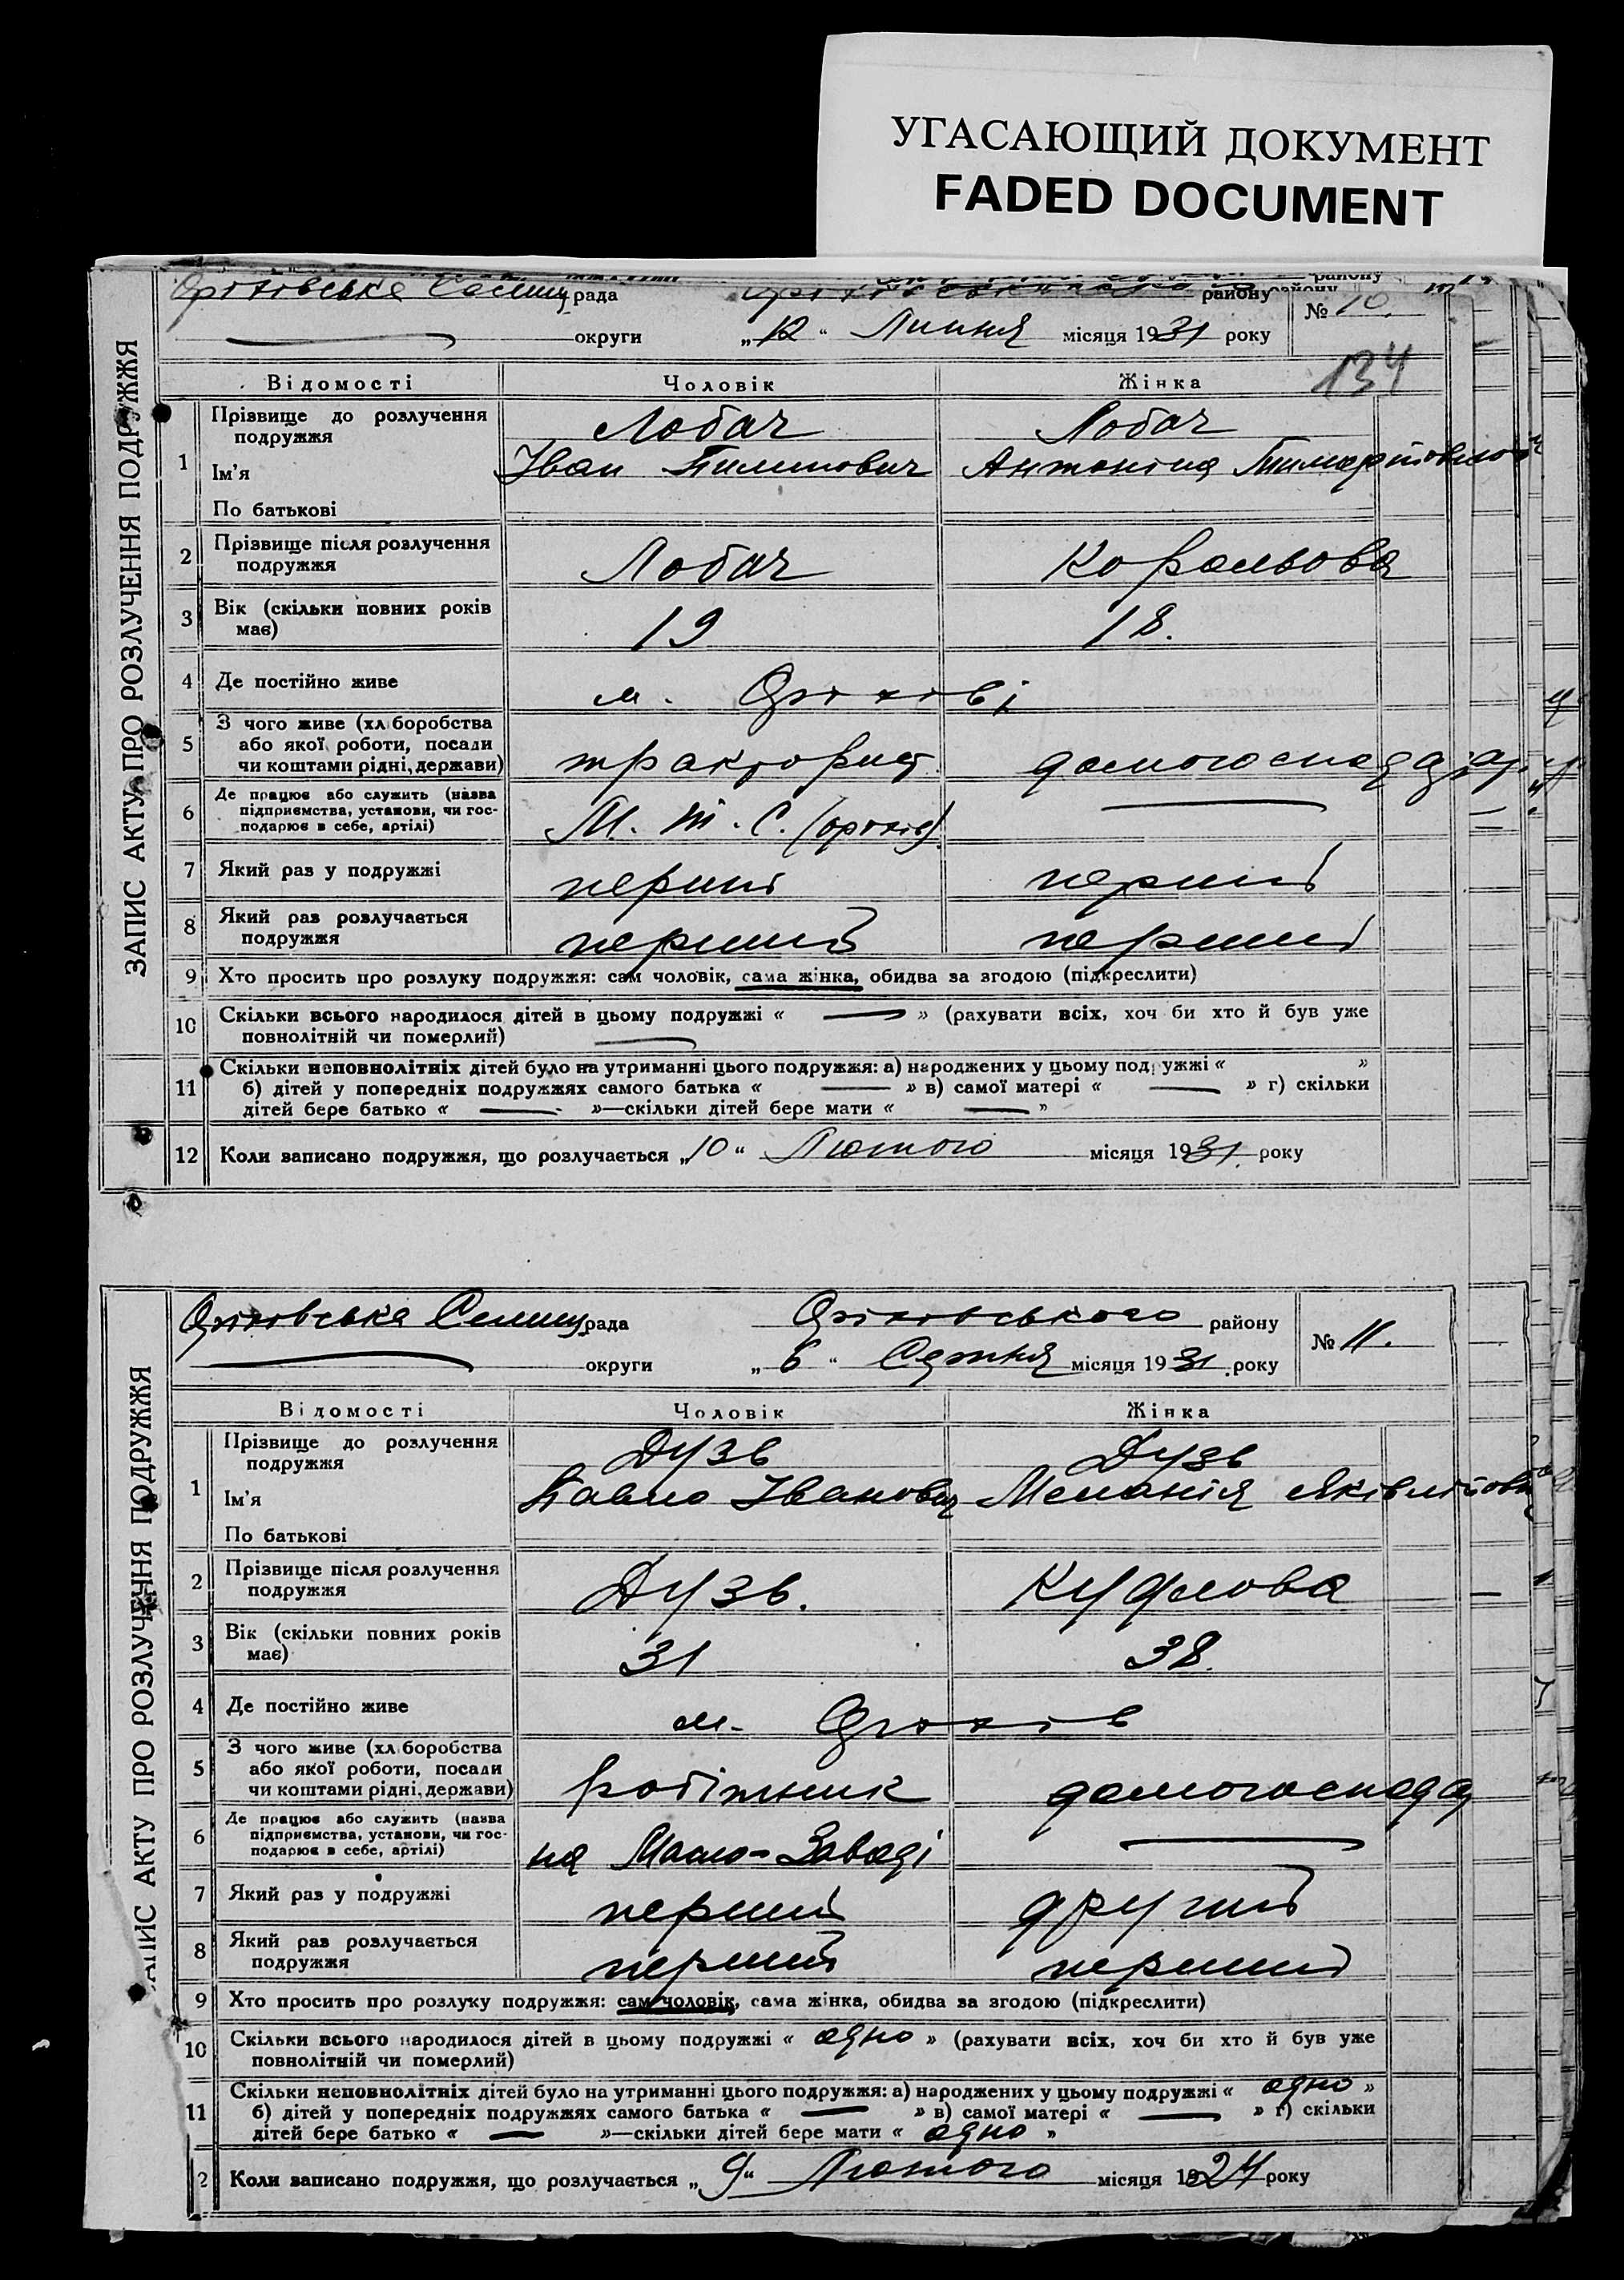 УГАСАЮЩИЙ ДОКУМЕНТ
FADED DOCUMENT
ЗАПИС АКТУ ПРО РОЗЛУЧЕННЯ ПОДРУЖЖЯ
Оріхівська Селищ рада району № 10.
округи „12“ Липня місяця 1931 року
134
Відомості Чоловік Жінка
1 Прізвище до розлучення Лобач Лобач
подружжя
Ім'я Іван Пилипович Антоніна
По батькові
2 Прізвище після розлучення Лобач Корольова
подружжя
3 Вік (скільки повних років 19 18.
має)
4 Де постійно живе м. Оріхові
5 З чого живе (хліборобства
або якої роботи, посади тракторист
чи коштами рідні, держави)
6 Де працює або служить (назва
підприємства, установи, чи гос- М. Т. С. (оріхів)
подарює в себе, артілі)
7 Який раз у подружжі перший перший
8 Який раз розлучається перший перший
подружжя
9 Хто просить про розлуку подружжя: сам чоловік, сама жінка, обидва за згодою (підкреслити)
10 Скільки всього народилося дітей в цьому подружжі « — » (рахувати всіх, хоч би хто й був уже
повнолітній чи померлий)
11 Скільки неповнолітніх дітей було на утриманні цього подружжя: а) народжених у цьому подружжі « »
б) дітей у попередніх подружжях самого батька « — » в) самої матері « — » г) скільки
дітей бере батько « — »—скільки дітей бере мати « — »
12 Коли записано подружжя, що розлучається „10“ Лютого місяця 1931 року
ЗАПИС АКТУ ПРО РОЗЛУЧЕННЯ ПОДРУЖЖЯ
Оріхівська Селищ рада Оріхівського району № 11.
округи „6“ Серпня місяця 1931 року
Відомості Чоловік Жінка
1 Прізвище до розлучення Дузь Дузь
подружжя
Ім'я Павло Іванович Меланія
По батькові
2 Прізвище після розлучення Дузь. Кудлова
подружжя
3 Вік (скільки повних років 31 38.
має)
4 Де постійно живе м. Оріхів
5 З чого живе (хліборобства
або якої роботи, посади
чи коштами рідні, держави) робітник домогоспода
6 Де працює або служить (назва
підприємства, установи, чи гос-
подарює в себе, артілі) на Масло-Заводі —
7 Який раз у подружжі перший другий
8 Який раз розлучається перший перший
подружжя
9 Хто просить про розлуку подружжя: сам чоловік, сама жінка, обидва за згодою (підкреслити)
10 Скільки всього народилося дітей в цьому подружжі « одно » (рахувати всіх, хоч би хто й був уже
повнолітній чи померлий)
11 Скільки неповнолітніх дітей було на утриманні цього подружжя: а) народжених у цьому подружжі « одно »
б) дітей у попередніх подружжях самого батька « — » в) самої матері « — » г) скільки
дітей бере батько « — »—скільки дітей бере мати « одно »
2 Коли записано подружжя, що розлучається „9“ Лютого місяця 1924 року